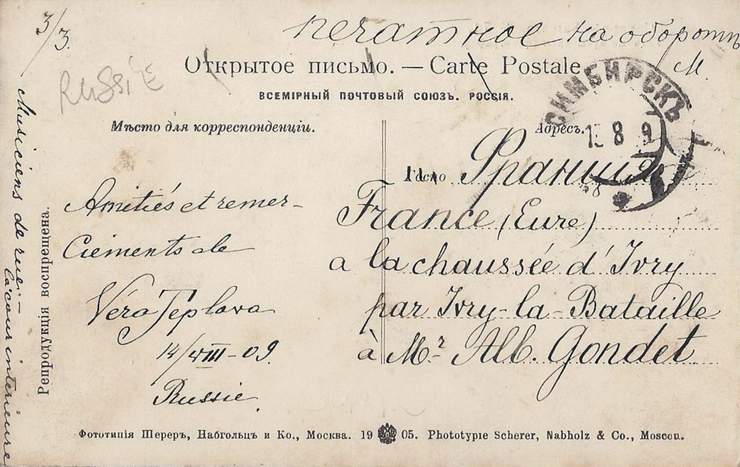 3/3.
печатное на оборотѣ
RUSSIE
М.
Открытое письмо. — Carte Postale.
ВСЕМІРНЫЙ ПОЧТОВЫЙ СОЮЗЪ. РОССІЯ.
СИМБИРСКЪ
8 9
Мѣсто для корреспонденціи.
Адресъ.
Франція
France (Eure)
a la chaussée d'Ivry
par Ivry-la-Bataille
à Mr Alb. Gondet
Amitiés et remer-
ciements de
Vera Teplova
14/VIII-09
Russie.
Musiciens de rue; —
la cour interieure
Репродукція воспрещена.
Фототипія Шереръ, Набгольцъ и Ко., Москва. 19 05. Phototypie Scherer, Nabholz & Co., Moscou.